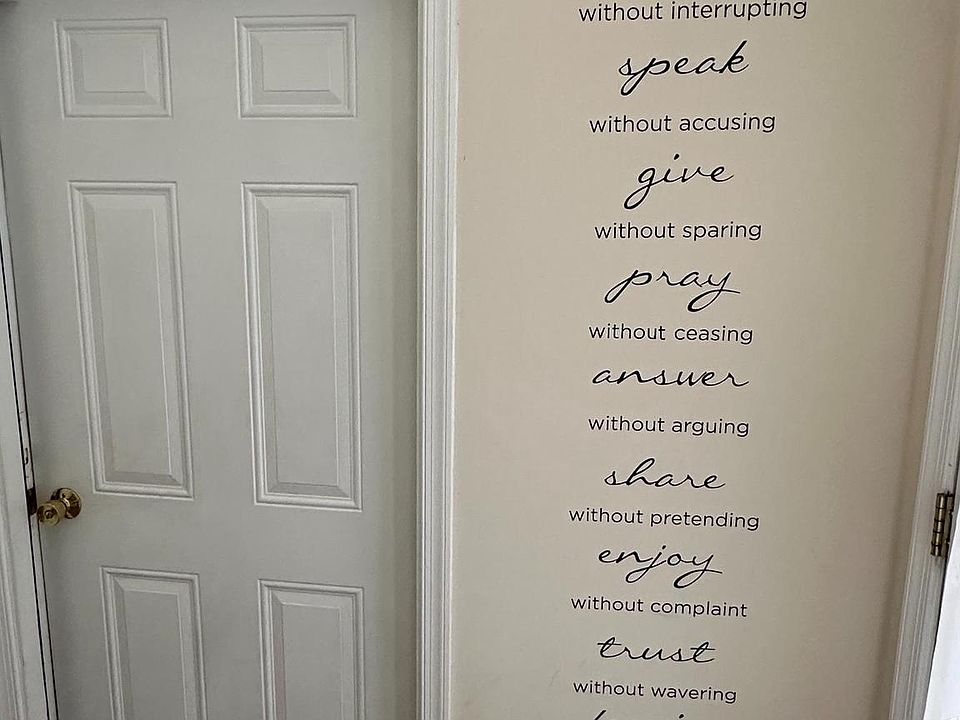 without interrupting
speak
without accusing
give
without sparing
pray
without ceasing
answer
without arguing
share
without pretending
enjoy
without complaint
trust
without wavering